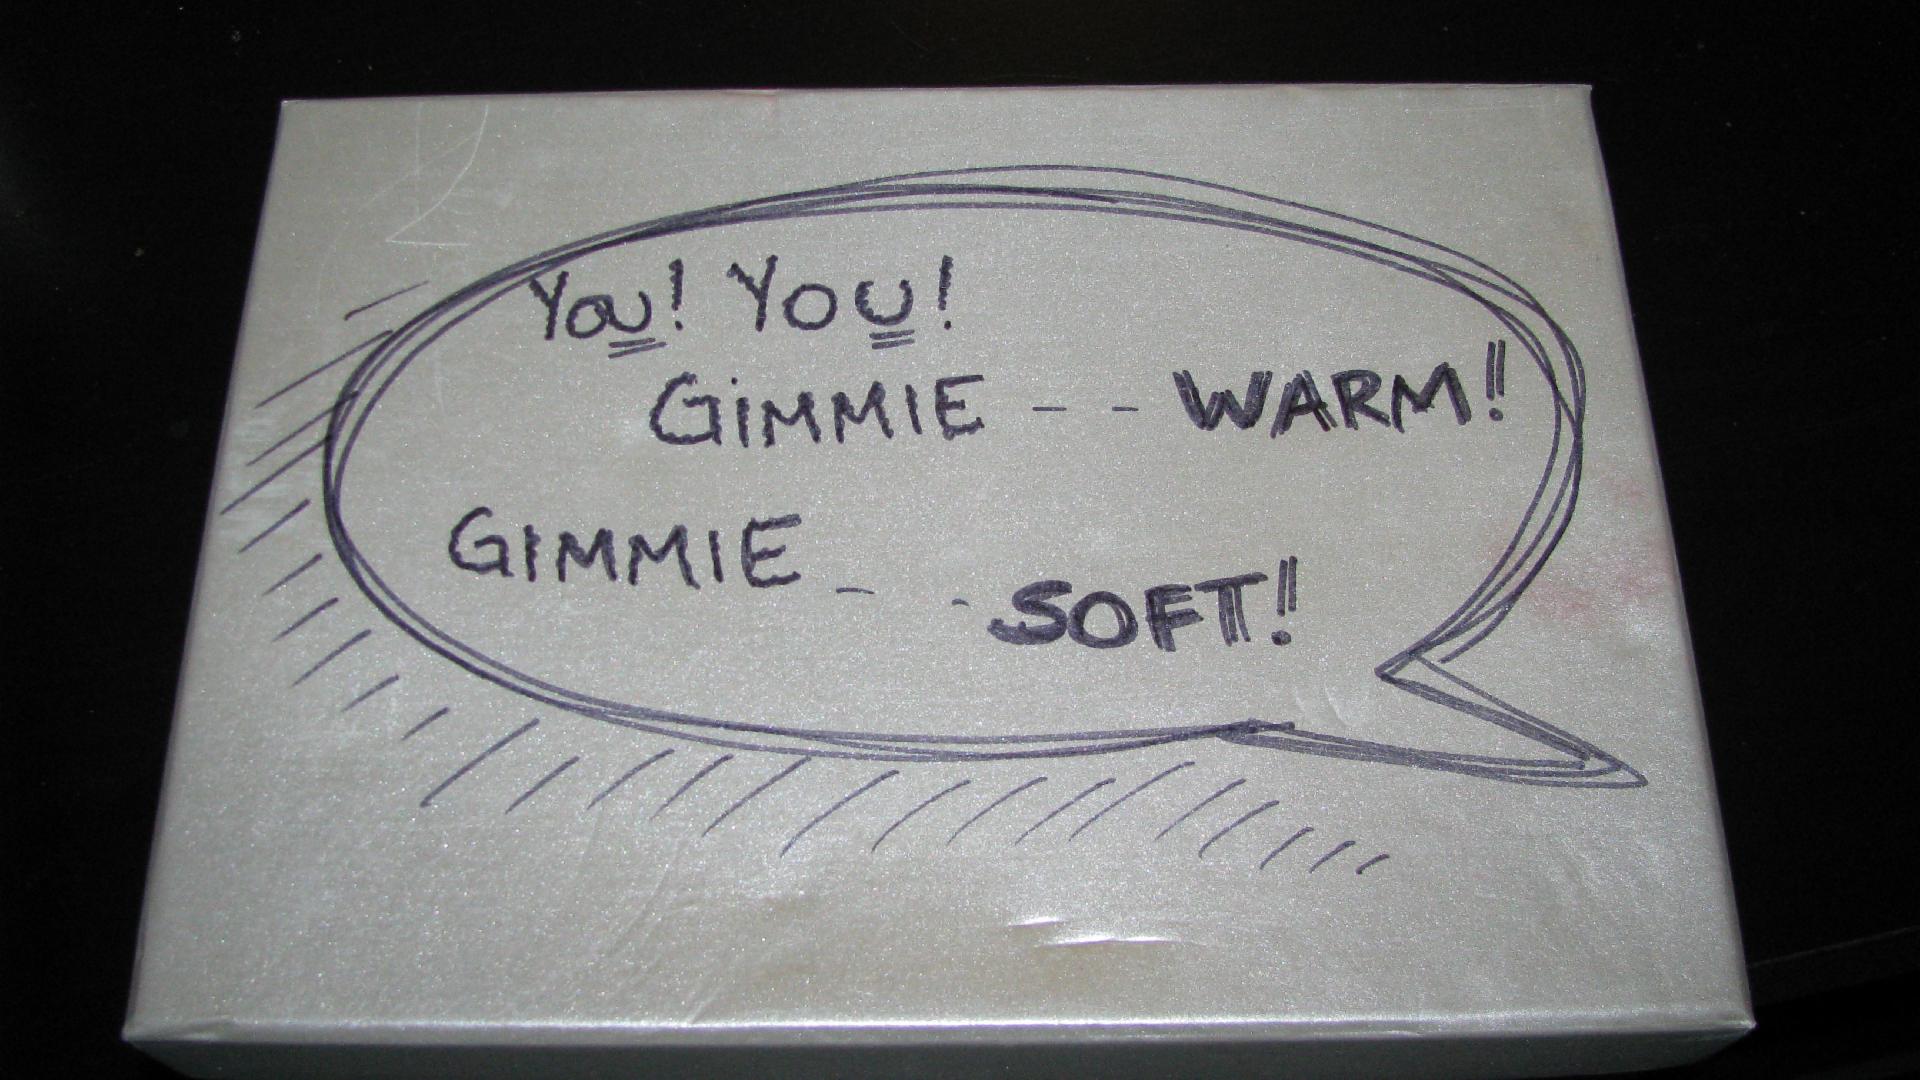 You! You!
GiMMIE - - WARM!
GIMMIE - - SOFT!